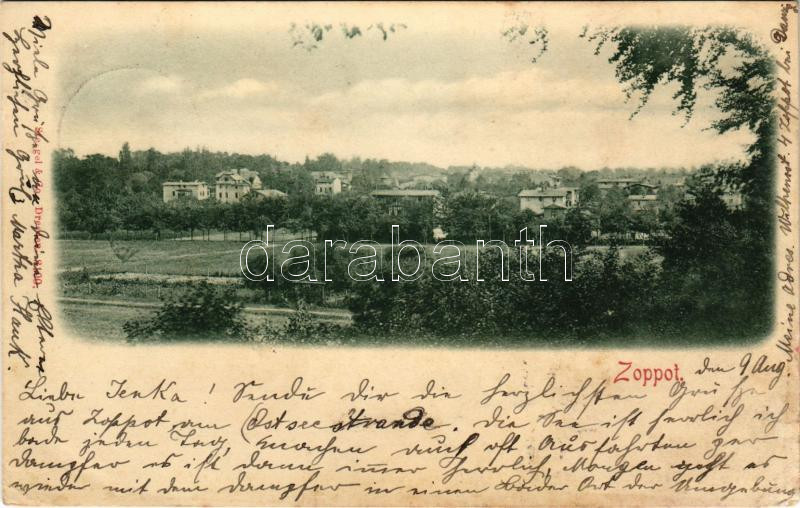 Zoppot.
den 9 Aug.
Liebe Jenka! Sende Dir die herzlichsten Grüße
aus Zoppot am Ostseestrande. Die See ist herrlich ich
bade jeden Tag, machen auch oft Ausfahrten per
dampfer es ist dann immer herrlich, Morgen geht es
wieder mit dem dampfer in einen Bade Ort der Umgebung
Viele Grüße an deine Eltern
Herzlichen Gruß Martha
Meine adres. 4 Zoppot bei Danzig
& Co., Dresden
darabanth